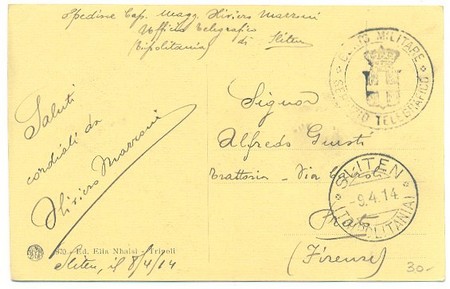 Spedisce Cap. Magg. Oliviero Marroni
Ufficio Telegrafico
(Tripolitania) di Sliten
GENIO MILITARE
UFFICIO TELEGRAFICO
Saluti
cordiali da
Oliviero Marroni
Signor
Alfredo Giusti
Trattoria - Via
Prato
(Firenze)
SLITEN
-9.4.14
(TRIPOLITANIA)
Ed. Elia Nhaisi - Tripoli
Sliten, il 8/4/14
30-